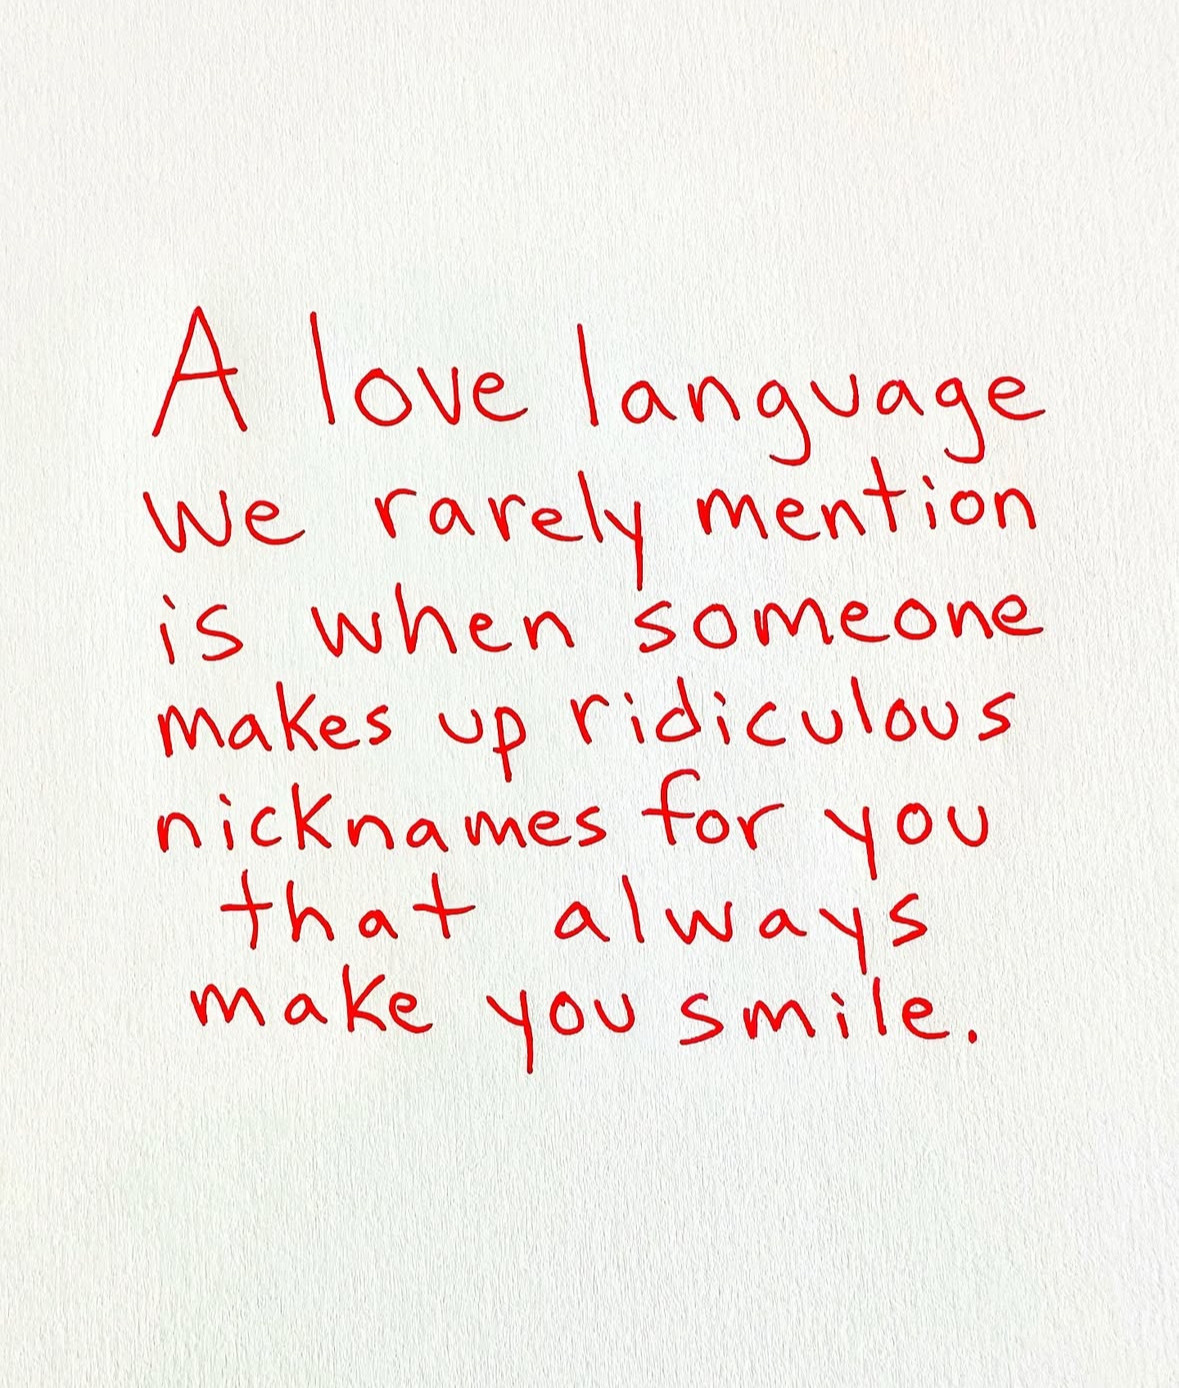 A love language
we rarely mention
is when someone
makes up ridiculous
nicknames for you
that always
make you smile.